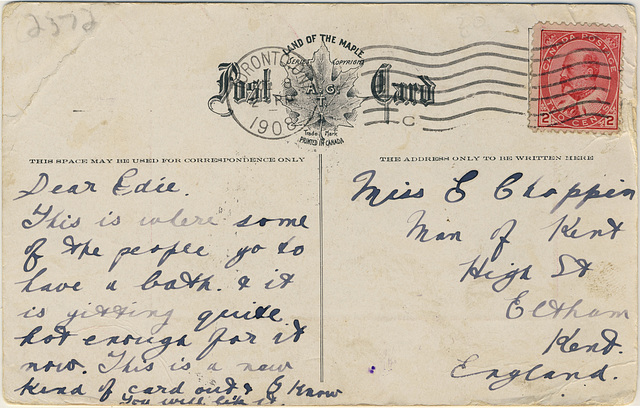 2372
LAND OF THE MAPLE
SERIES COPYRIGHT
Post Card
A.G.
T
Trade Mark
PRINTED IN CANADA
TORONTO
8
1908
C
CANADA POSTAGE
2 2
TWO CENTS
THIS SPACE MAY BE USED FOR CORRESPONDENCE ONLY
THE ADDRESS ONLY TO BE WRITTEN HERE
Dear Edie.
This is where some
of the people go to
have a bath. & it
is gitting quite
hot enough for it
now. This is a new
kind of card out & I know
You will like it.
Miss E Chappin
Man of Kent
High St
Eltham
Kent.
England.